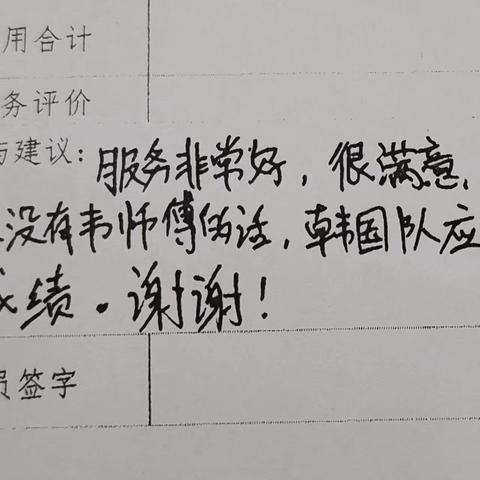 用合计
务评价
与建议：服务非常好，很满意，
没有韦师傅的话，韩国队应
成绩。谢谢！
员签字